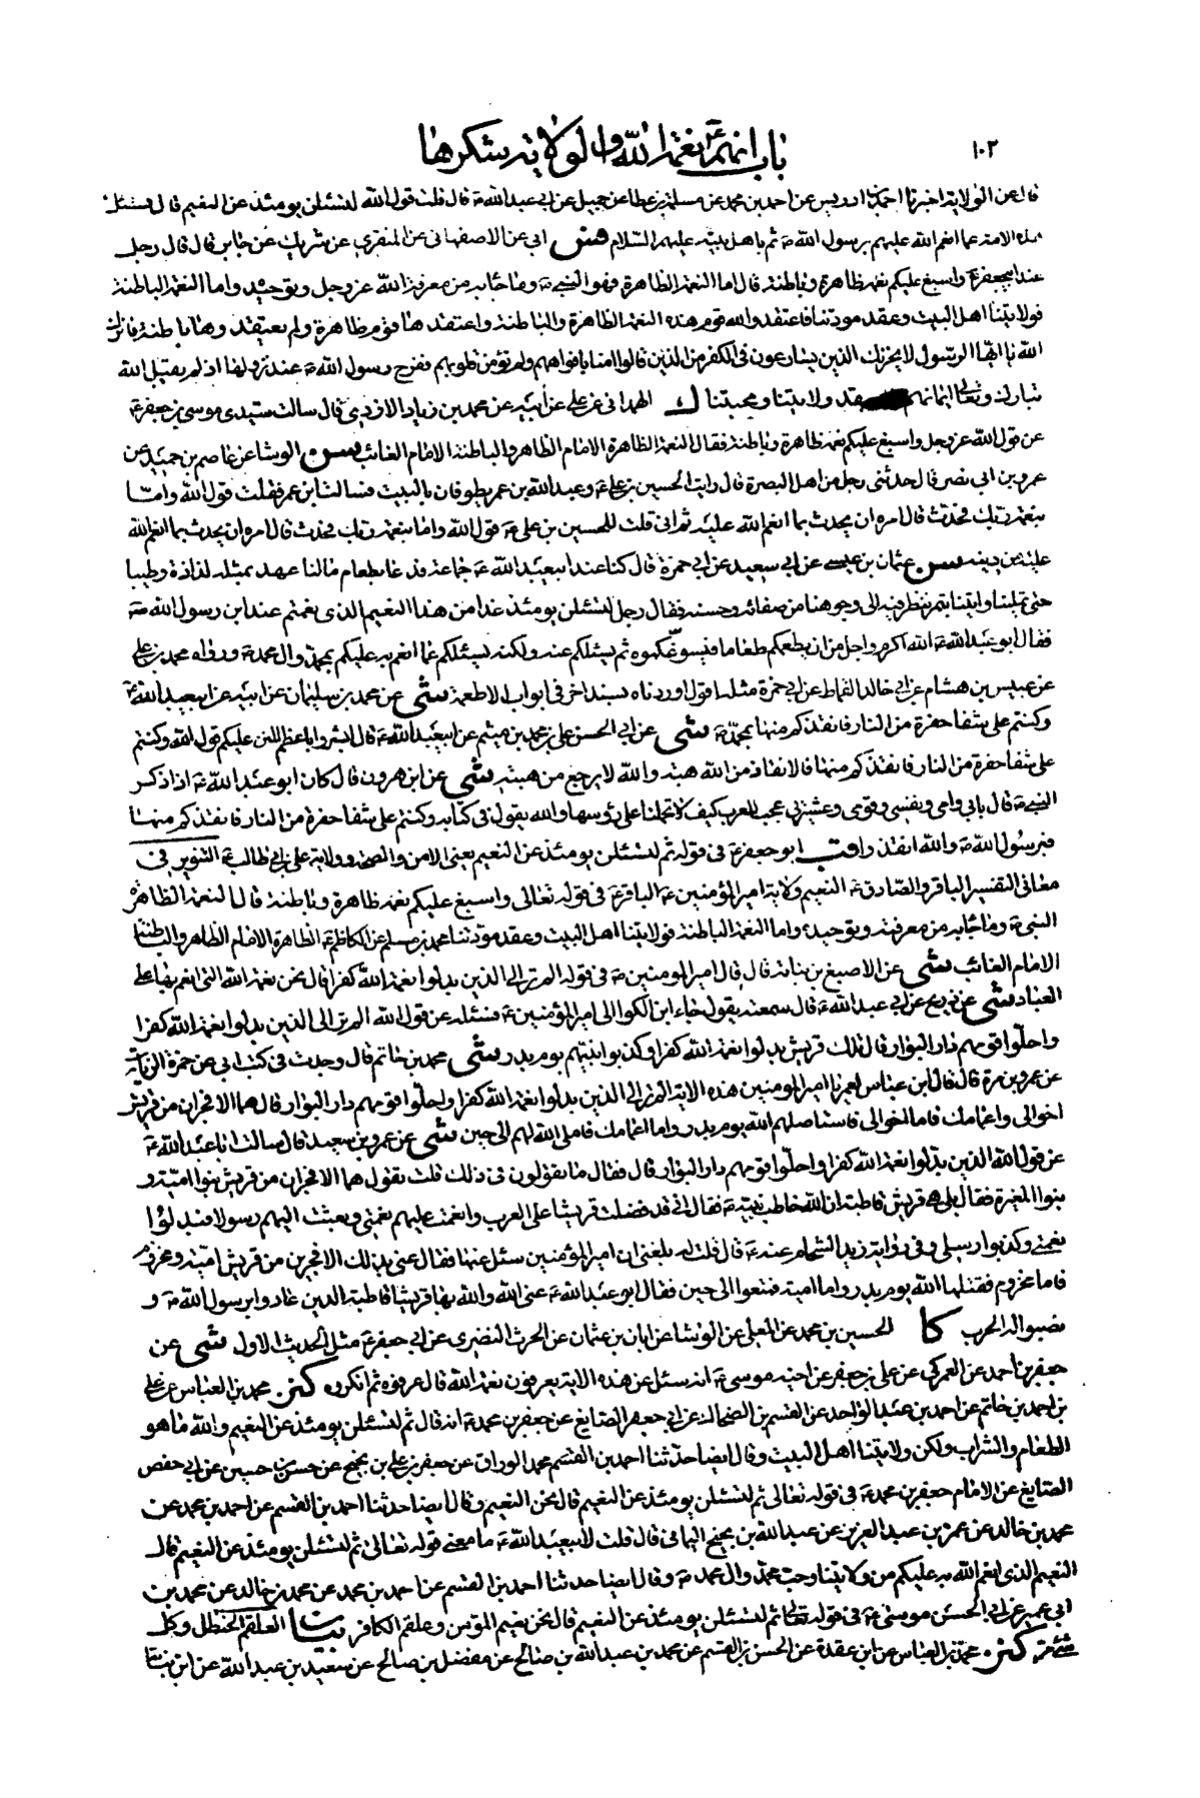 ١٠٢
باب انهم ع نعمة الله والولاية شكرها
قال عن الولاية اخبرنا احمد بن ادريس عن احمد بن محمد عن مسلمة بن عطا عن جميل عن ابي عبد الله ع قال قلت قول الله لتسئلن يومئذ عن النعيم قال تسئل
هذه الامة عما انعم الله عليهم برسول الله ص ثم باهل بيته عليهم السلام فس ابي عن الاصفهاني عن المنقري عن شريك عن جابر قال قال رجل
عند ابي جعفر ع واسبغ عليكم نعمه ظاهرة وباطنة قال اما النعمة الظاهرة فهو النبي ص وما جاء به من معرفة الله عز وجل وتوحيده واما النعمة الباطنة
فولايتنا اهل البيت وعقد مودتنا فاعتقد والله قوم هذه النعمة الظاهرة والباطنة واعتقدها قوم ظاهرة ولم يعتقدوها باطنة فانزل
الله يا ايها الرسول لا يحزنك الذين يسارعون في الكفر من الذين قالوا امنا بافواههم ولم تؤمن قلوبهم ففرح رسول الله ص عند نزولها اذ لم يقبل الله
تبارك وتعالى ايمانهم بعقد ولايتنا ومحبتنا ك الهمداني عن علي عن ابيه عن محمد بن زياد الازدي قال سالت سيدي موسى بن جعفر ع
عن قول الله عز وجل واسبغ عليكم نعمه ظاهرة وباطنة فقال النعمة الظاهرة الامام الظاهر والباطنة الامام الغائب سن الوشا عن عاصم بن حميد عن
عمرو بن ابي نصر قال حدثني رجل من اهل البصرة قال رايت الحسين بن علي ع وعبد الله بن عمر يطوفان بالبيت فسالت ابن عمر فقلت قول الله واما
بنعمة ربك فحدث قال امره ان يحدث بما انعم الله عليه ثم اني قلت للحسين بن علي ع قول الله واما بنعمة ربك فحدث قال امره ان يحدث بما انعم الله
عليه من دينه سن عثمان بن عيسى عن ابي سعيد عن ابي حمزة قال كنا عند ابي عبد الله ع جماعة فدعا بطعام ما لنا عهد بمثله لذاذة وطيبا
حتى تملينا واوتينا بتمر ننظر فيه الى وجوهنا من صفائه وحسنه فقال رجل لتسئلن يومئذ غدا من هذا النعيم الذي نعمتم عند ابن رسول الله ص
فقال ابو عبد الله ع الله اكرم واجل من ان يطعمكم طعاما فيسوغكموه ثم يسئلكم عنه ولكنه يسئلكم عما انعم به عليكم بمحمد وال محمد ص ورواه محمد بن علي
عن عبيس بن هشام عن ابي خالد القماط عن ابي حمزة مثله اقول اوردناه بسند اخر في ابواب الاطعمة شي عن محمد بن سليمان عن ابيه عن ابي عبد الله ع
وكنتم على شفا حفرة من النار فانقذكم منها بمحمد ص شي عن ابي الحسن علي بن محمد بن ميثم عن ابي عبد الله ع قال ابشروا باعظم المنن عليكم قول الله وكنتم
على شفا حفرة من النار فانقذكم منها فالانقاذ من الله هبة والله لا يرجع من هبته شي عن ابن هرون قال كان ابو عبد الله ع اذا ذكر
النبي ص قال بابي وامي ونفسي وقومي وعشيرتي عجب للعرب كيف لا تحملنا على رؤسها والله يقول في كتابه وكنتم على شفا حفرة من النار فانقذكم منها
فبرسول الله ص والله انقذوا قب ابو جعفر ع في قوله ثم لتسئلن يومئذ عن النعيم يعني الامن والصحة وولاية علي بن ابي طالب ع التنوير في
معاني التفسير الباقر والصادق ع النعيم ولاية امير المؤمنين ع الباقر ع في قوله تعالى واسبغ عليكم نعمه ظاهرة وباطنة قال النعمة الظاهرة
النبي ص وما جاء به من معرفته وتوحيده واما النعمة الباطنة فولايتنا اهل البيت وعقد مودتنا محمد بن مسلم عن الكاظم ع الظاهرة الامام الظاهر والباطنة
الامام الغائب شي عن الاصبغ بن نباتة قال قال امير المؤمنين ع في قوله الم تر الى الذين بدلوا نعمة الله كفرا قال نحن نعمة الله التي انعم بها على
العباد شي عن ذريح عن ابي عبد الله ع قال سمعته يقول جاء ابن الكوا الى امير المؤمنين ع فسئله عن قول الله الم تر الى الذين بدلوا نعمة الله كفرا
واحلوا قومهم دار البوار قال تلك قريش بدلوا نعمة الله كفرا وكذبوا نبيهم يوم بدر شي محمد بن حاتم قال وجدت في كتب ابي عن حمزة الزيات
عن عمرو بن مرة قال قال ابن عباس لعمر يا امير المؤمنين هذه الاية الم تر الى الذين بدلوا نعمة الله كفرا واحلوا قومهم دار البوار قال هما الافجران من قريش
اخوالي واعمامك فاما اخوالي فاستاصلهم الله يوم بدر واما اعمامك فاملى الله لهم الى حين شي عن عمرو بن سعيد قال سالت ابا عبد الله ع
عن قول الله الذين بدلوا نعمة الله كفرا واحلوا قومهم دار البوار قال فقال ما تقولون في ذلك قلت نقول هما الافجران من قريش بنوا امية و
بنوا المغيرة فقال بلى هي قريش قاطبة ان الله خاطب نبيه ص فقال اني قد فضلت قريشا على العرب وانعمت عليهم نعمتي وبعثت اليهم رسولا فبدلوا
نعمتي وكذبوا رسلي وفي رواية زيد الشحام عنه ع قال قلت له بلغني ان امير المؤمنين سئل عنها فقال عني بذلك الافجرين من قريش امية ومخزوم
فاما مخزوم فقتلها الله يوم بدر واما امية فمتعوا الى حين فقال ابو عبد الله ع عنى الله والله بها قريشا قاطبة الذين عادوا رسول الله ص و
نصبوا له الحرب كا الحسين بن محمد عن المعلى عن الوشا عن ابان بن عثمان عن الحرث النضري عن ابي جعفر ع مثل الحديث الاول شي عن
جعفر بن احمد عن العمركي عن علي بن جعفر عن اخيه موسى ع انه سئل عن هذه الاية يعرفون نعمة الله قال عرفوه ثم انكروه كنز محمد بن العباس عن علي
بن احمد بن حاتم عن احمد بن عبد الواحد عن القسم بن الضحاك عن ابي حفص الصايغ عن جعفر بن محمد ع انه قال ثم لتسئلن يومئذ عن النعيم والله ما هو
الطعام والشراب ولكن ولايتنا اهل البيت وقال ايضا حدثنا احمد بن القسم محمد الوراق عن جعفر بن علي بن نجيح عن حسن بن حسين عن ابي حفص
الصايغ عن الامام جعفر بن محمد ع في قوله تعالى ثم لتسئلن يومئذ عن النعيم قال نحن النعيم وقال ايضا حدثنا احمد بن القسم عن احمد بن محمد عن
محمد بن خالد عن عمر بن عبد العزيز عن عبد الله بن نجيح اليماني قال قلت لابي عبد الله ع ما معنى قوله تعالى ثم لتسئلن يومئذ عن النعيم قال
النعيم الذي انعم الله به عليكم من ولايتنا وحب محمد وال محمد ص وقال ايضا حدثنا احمد بن القسم عن احمد بن محمد عن محمد بن خالد عن محمد بن
ابي عمير عن ابي الحسن موسى ع في قوله تعالى ثم لتسئلن يومئذ عن النعيم قال نحن نعيم المؤمن وعلقم الكافر بيان العلقم الحنظل وكل
شئ مر كنز محمد بن العباس عن ابن عقدة عن الحسن بن القسم عن محمد بن عبد الله بن صالح عن مفضل بن صالح عن سعيد بن عبد الله عن ابن نباتة